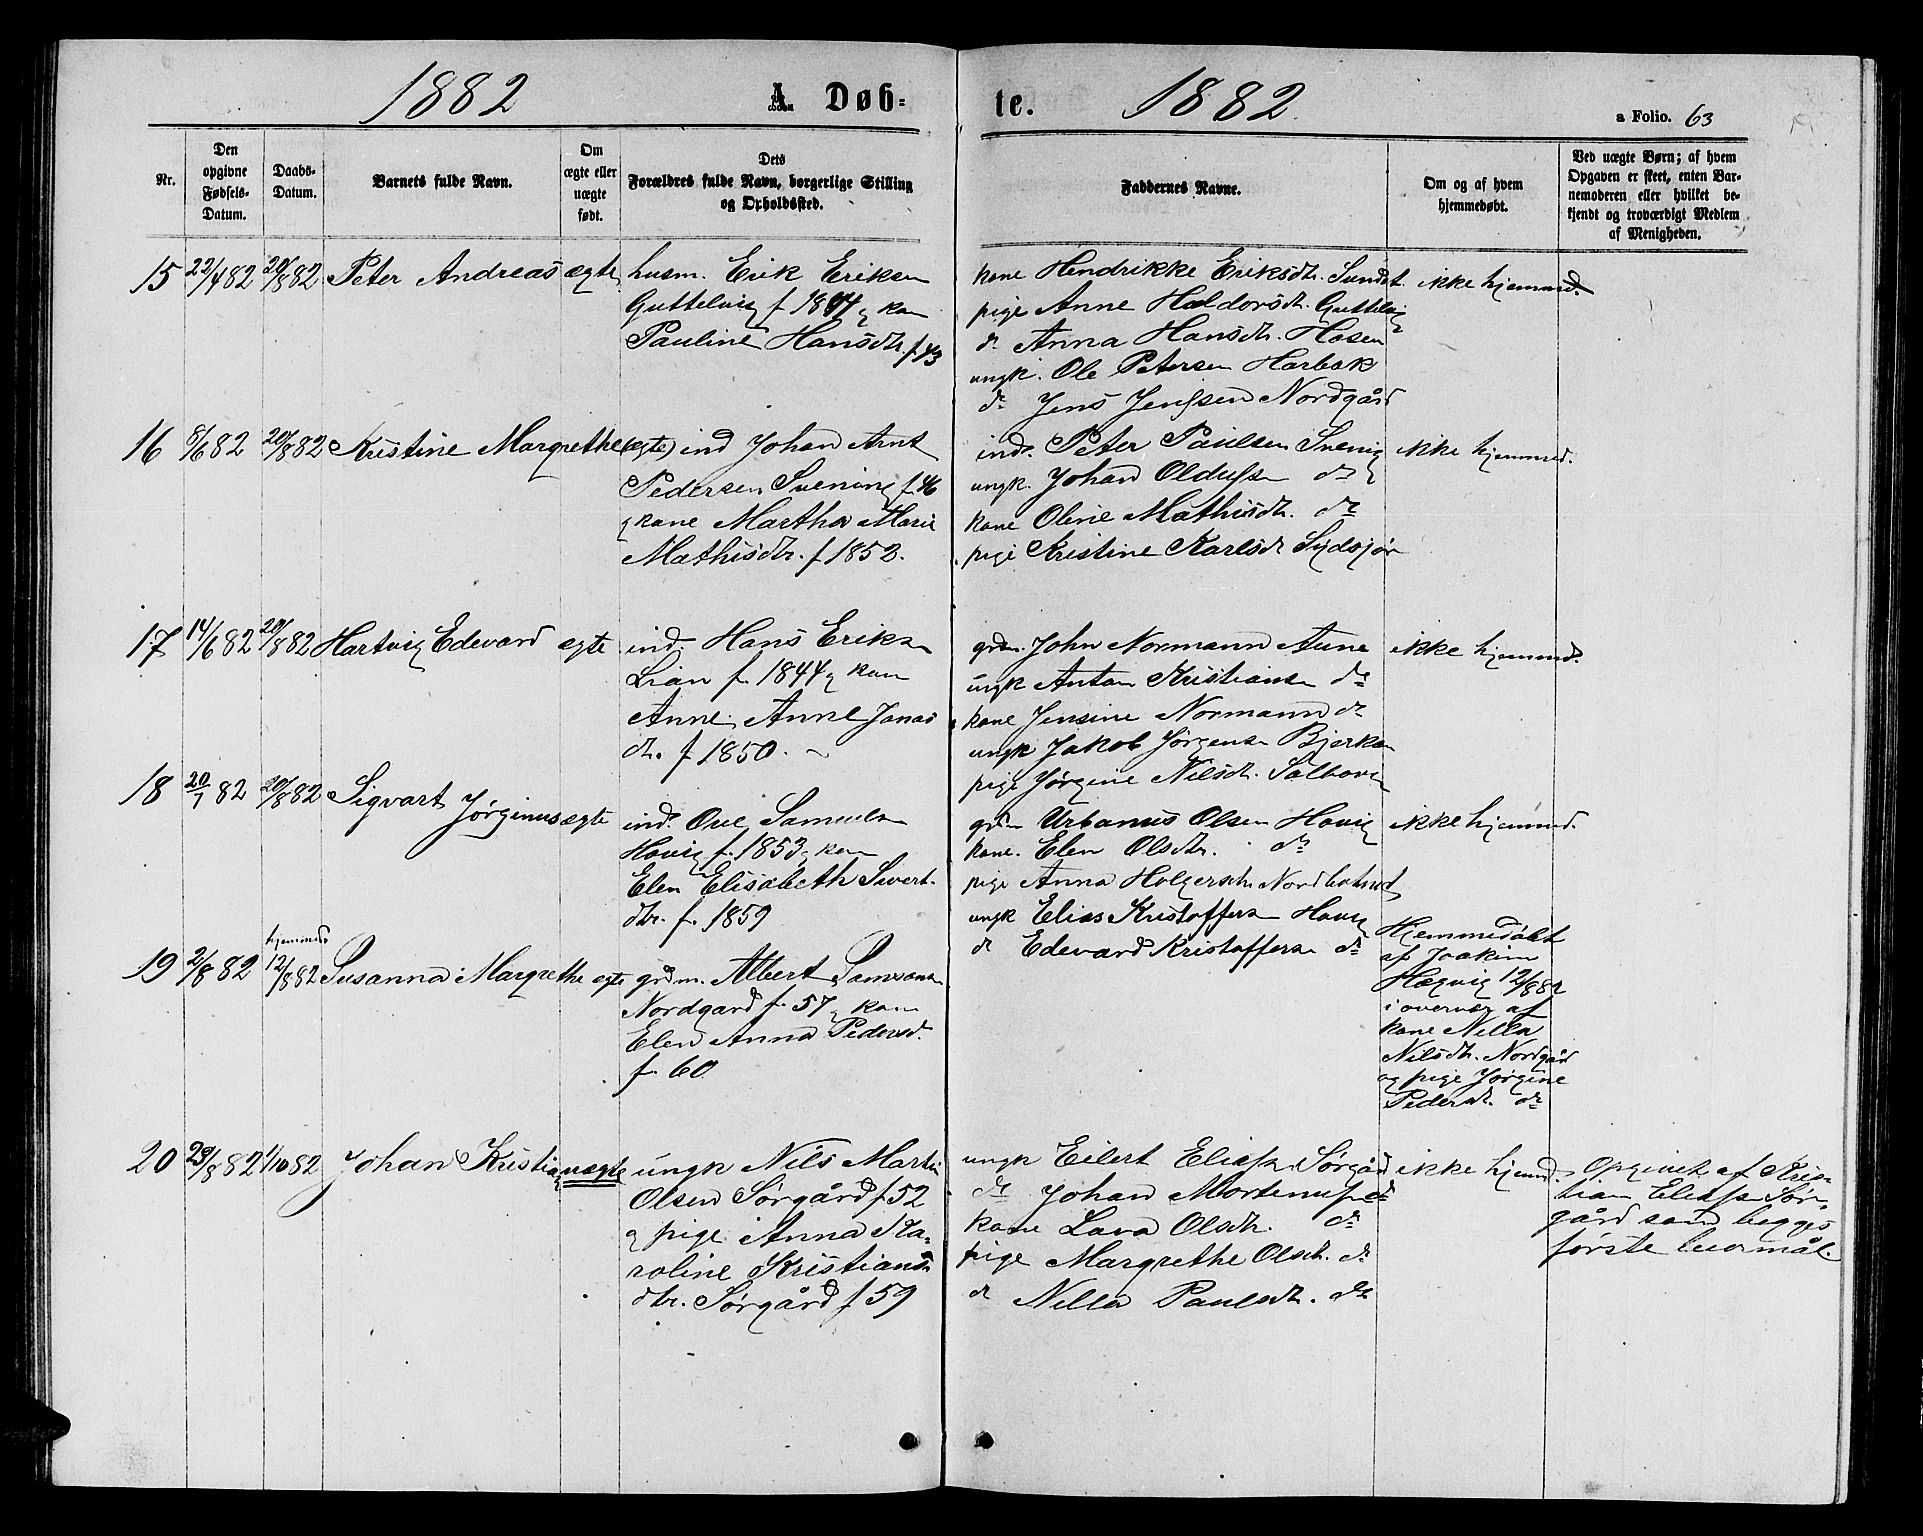 1882 A. Døb= te. 1882 a Folio. 63
Nr.
Den opgivne Fødsels-Datum.
Daabs-Datum.
Barnets fulde Navn.
Om ægte eller uægte født.
Dets Forældres fulde Navn, borgerlige Stilling og Opholdssted.
Faddernes Navne.
Om og af hvem hjemmedøbt.
Ved uægte Børn; af hvem Opgaven er skeet, enten Barnemoderen eller hvilket bekjendt og troværdigt Medlem af Menigheden.
15 22/4 82 20/8 82 Peter Andreas ægte husm. Erik Eriksen
Guttelvig f 1844 & kon
Pauline Hansdtr f 43
kone Hendrikke Eriksdtr. Sundet ikke hjemmed.
pige Anne Haldorsdtr. Guttelvig
do Anna Hansdtr. Hosen
ungk. Ole Petersen Harbak
do Jens Jenssen Nordgård
16 8/6 82 20/8 82 Kristine Margrethe (ægte) ind Johan Arnt
Pedersen Svening f. 46
& kone Martha Marie
Mathisdtr. f 1853.
ind. Peter Paulsen Svenig ikke hjemmed.
ungk. Johan Oldussen do
kone Oline Mathisdtr. do
pige Kristine Karlsdtr Sydsjør
17 14/6 82 20/8 82 Hartvig Edevard egte ind. Hans Eriksn
Lian f. 1844 & kon
Anne Anne Jonas
dtr. f 1850.
grdm. John Normann Aune ikke hjemmed.
ungk Anton Kristiansen do
kone Jensine Normann do
ungk Jakob Jørgensn Bjerkan
pige Jørgine Nilsdtr.
18 20/7 82 20/8 82 Sigvart Jørginus ægte ind. Ove Samuelsn
Hovig f. 1853 & kon
Elen Elisabeth Sivert-
dtr. f. 1859
grdm Urbanus Olsen Hovig ikke hjemmed.
kone. Elen Olsdtr. do
pige Anna Holgersdtr
ungk Elias Kristoffersn Hovig
do Edevard Kristoffersn do
19 2/8 82 hjemmed 12/8 82 Susanna Margrethe egte grdm. Albert Samsonsn
Nordgard f. 57 & kon
Elen Anna Pedersd.
f. 60
Hjemmedøbt
af Joakim
Hægvig 12/8 82
i overvær af
kone Nella
Nilsdtr. Nordgård
og pige Jørgine
Pedersdtr. do
20 29/8 82 1/10 82 Johan Kristian uægte ungk Nils Martin
Olsen Sørgård f 52
& pige Anna Ka-
roline Kristians
dtr. Sørgård f 59
ungk Eilert Eliassn Sørgård ikke hjemd.
do Johan Mortenussn do
kone Lava Olsdtr. do
pige Margrethe Olsdtr. do
do Nella Paulsdtr. do
Opgivet af Kris-
tian Eliassn Sør-
gård som begges
første leiermål.